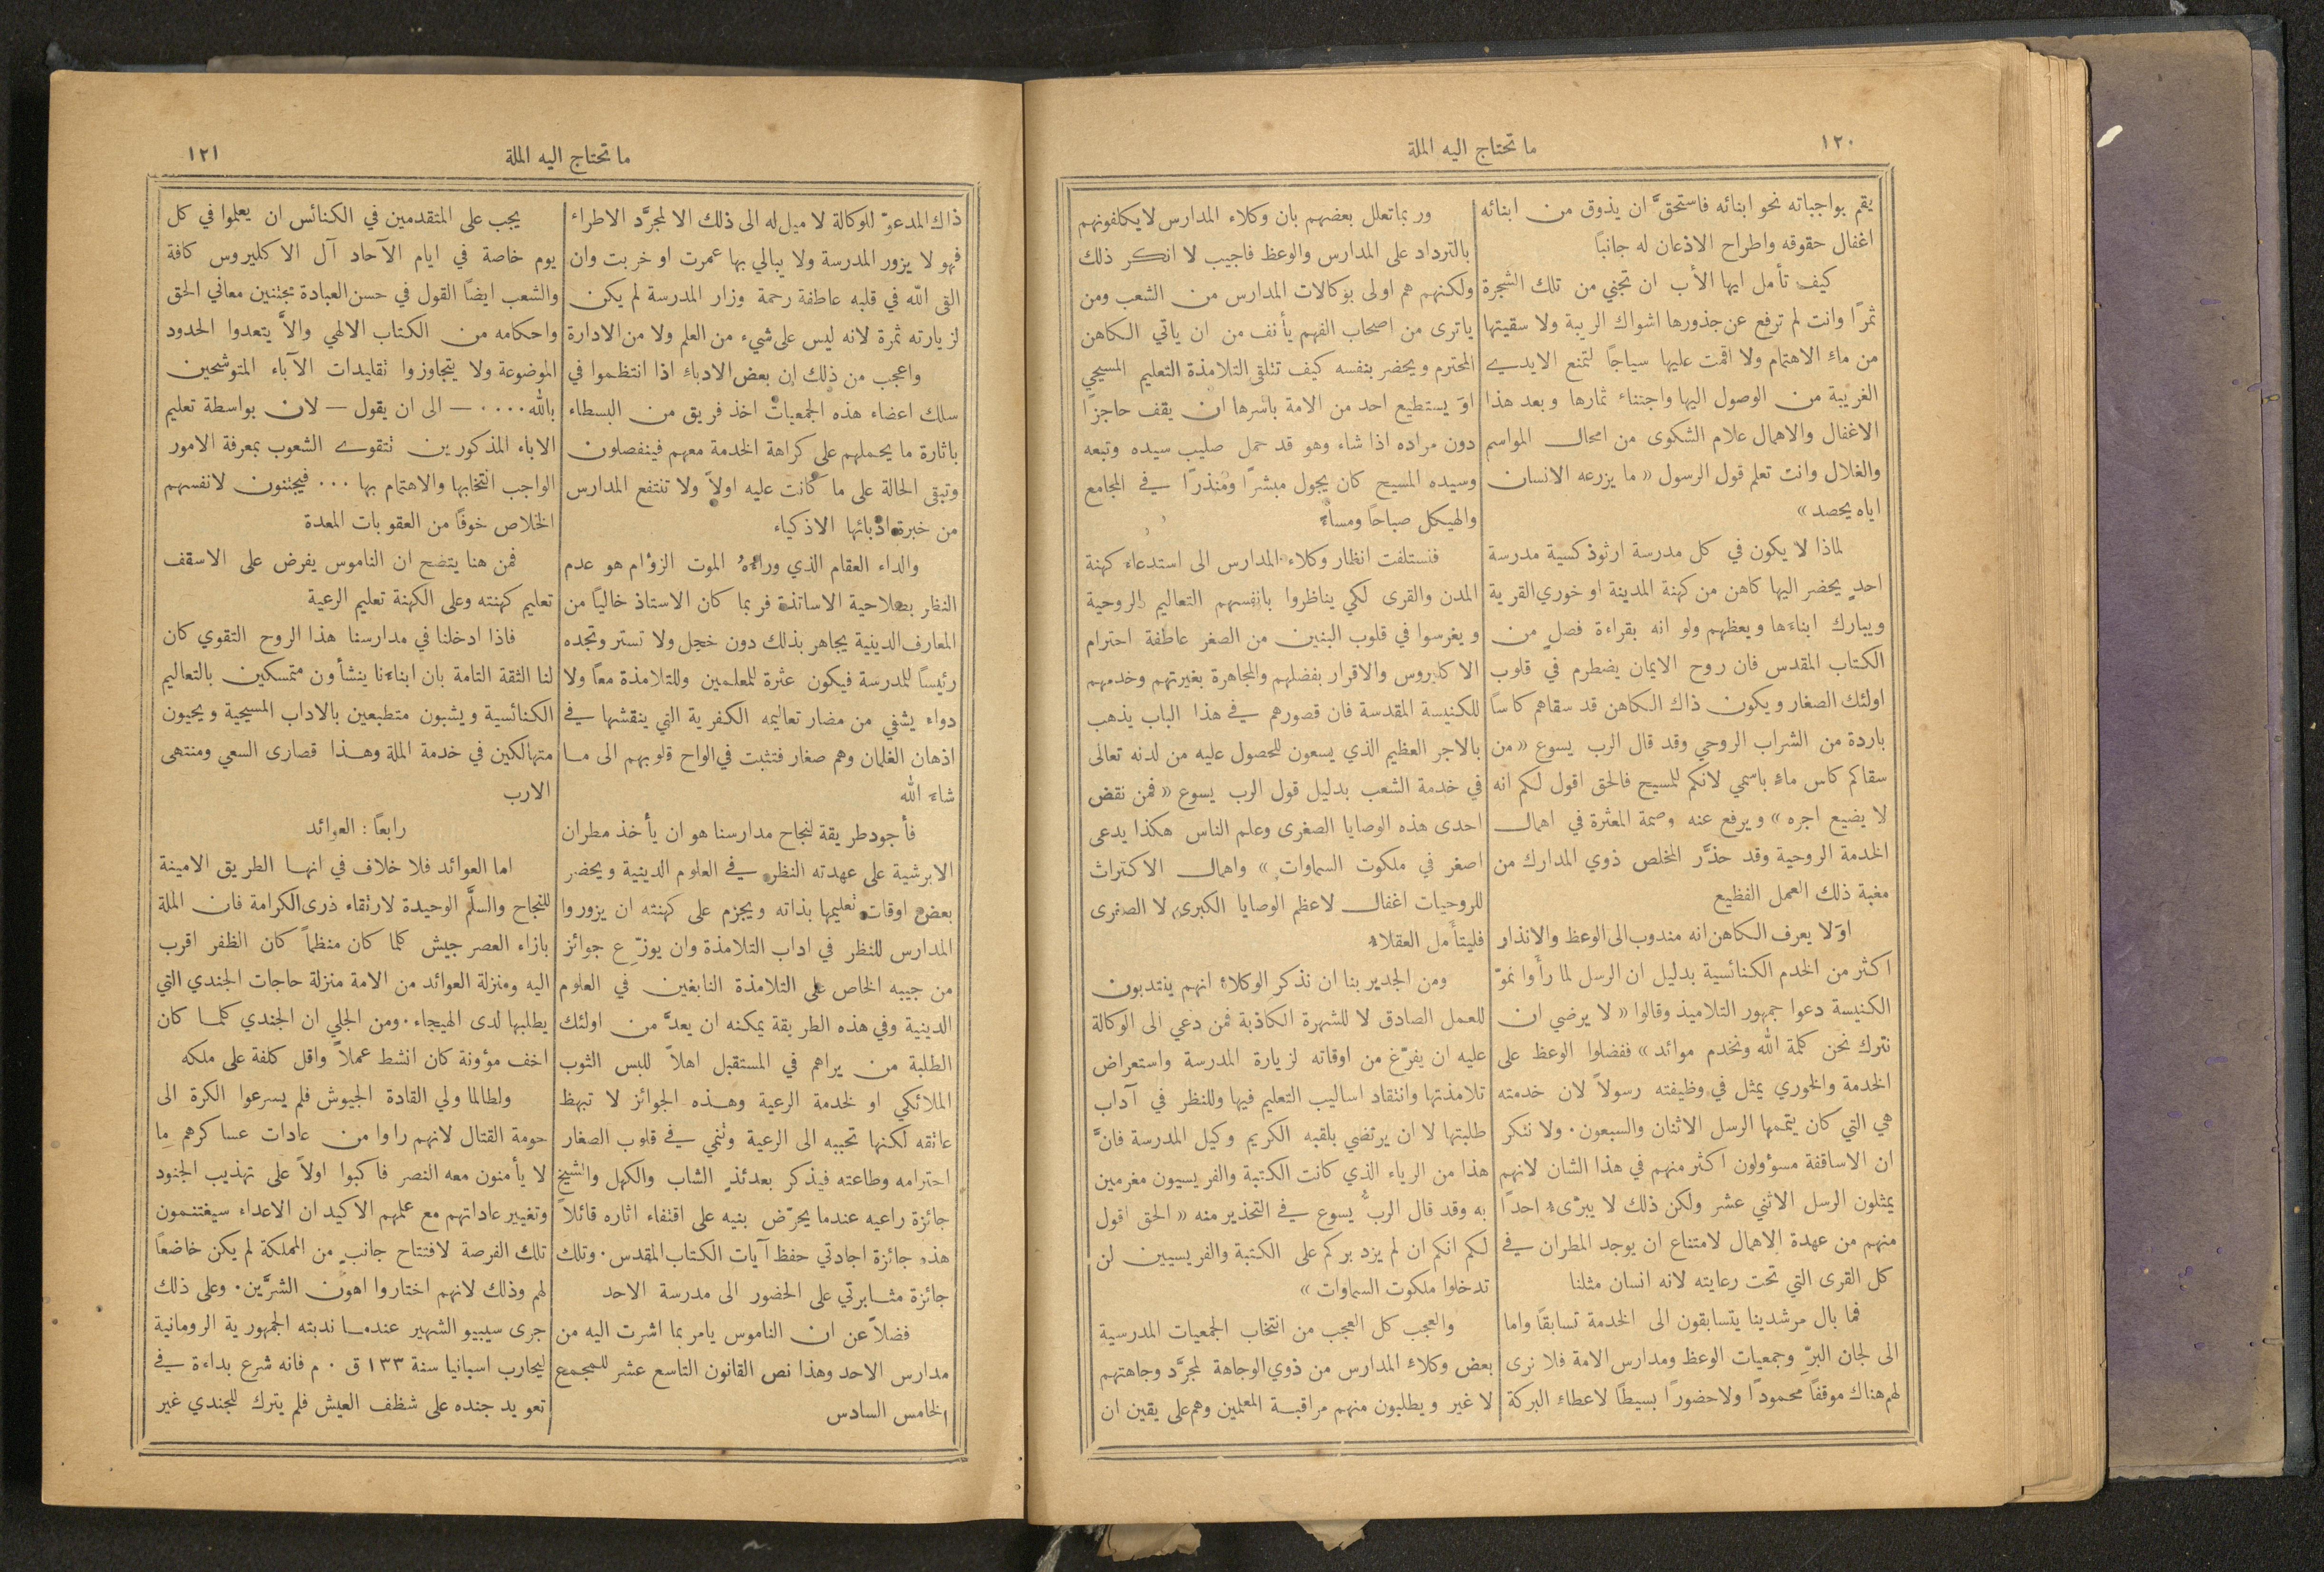 ١٢٠
ما تحتاج اليه الملة
يقم بواجباته نحو ابنائه فاستحقَّ ان يذوق من ابنائه
اغفال حقوقه واطراح الاذعان له جانبًا
كيف تأمل ايها الأب ان تجني من تلك الشجرة
ثمرًا وانت لم ترفع عن جذورها اشواك الريبة ولا سقيتها
من ماء الاهتمام ولا اقمت عليها سياجًا لتمنع الايدي
الغريبة من الوصول اليها واجتناء ثمارها وبعد هذا
الاغفال والاهمال علام الشكوى من امحال المواسم
والغلال وانت تعلم قول الرسول « ما يزرعه الانسان
اياه يحصد »
لماذا لا يكون في كل مدرسة ارثوذكسية مدرسة
احدٍ يحضر اليها كاهن من كهنة المدينة او خوري القرية
ويبارك ابناءها ويعظهم ولو انه بقراءة فصلٍ من
الكتاب المقدس فان روح الايمان يضطرم في قلوب
اولئك الصغار ويكون ذاك الكاهن قد سقاهم كاسًا
باردة من الشراب الروحي وقد قال الرب يسوع « من
سقاكم كاس ماء باسمي لانكم للمسيح فالحق اقول لكم انه
لا يضيع اجره » ويرفع عنه وصمة المعثرة في اهمال
الخدمة الروحية وقد حذَّر المخلص ذوي المدارك من
مغبة ذلك العمل الفظيع
اوَ لا يعرف الكاهن انه مندوب الى الوعظ والانذار
اكثر من الخدم الكنائسية بدليل ان الرسل لما رأَوا نموّ
الكنيسة دعوا جمهور التلاميذ وقالوا « لا يرضي ان
نترك نحن كلمة الله ونخدم موائد » ففضلوا الوعظ على
الخدمة والخوري يمثل في وظيفته رسولاً لان خدمته
هي التي كان يتممها الرسل الاثنان والسبعون . ولا ننكر
ان الاساقفة مسؤولون اكثر منهم في هذا الشان لانهم
يمثلون الرسل الاثني عشر ولكن ذلك لا يبرّىء احدًا
منهم من عهدة الاهمال لامتناع ان يوجد المطران في
كل القرى التي تحت رعايته لانه انسان مثلنا
فما بال مرشدينا يتسابقون الى الخدمة تسابقًا واما
الى لجان البرِّ وجمعيات الوعظ ومدارس الامة فلا نرى
لهم هناك موقفًا محمودًا ولا حضورًا بسيطًا لاعطاء البركة
وربما تعلل بعضهم بان وكلاء المدارس لا يكلفونهم
بالترداد على المدارس والوعظ فاجيب لا انكر ذلك
ولكنهم هم اولى بوكالات المدارس من الشعب ومن
يا ترى من اصحاب الفهم يأنف من ان ياتي الكاهن
المحترم ويحضر بنفسه كيف تتلقى التلامذة التعليم المسيحي
اوَ يستطيع احد من الامة باسرها ان يقف حاجزًا
دون مراده اذا شاء وهو قد حمل صليب سيده وتبعه
وسيده المسيح كان يجول مبشرًا ومنذرًا في المجامع
والهيكل صباحًا ومساءً
فنستلفت انظار وكلاء المدارس الى استدعاء كهنة
المدن والقرى لكي يناظروا بانفسهم التعاليم الروحية
ويغرسوا في قلوب البنين من الصغر عاطفة احترام
الاكليروس والاقرار بفضلهم والمجاهرة بغيرتهم وخدمهم
للكنيسة المقدسة فان قصورهم في هذا الباب يذهب
بالاجر العظيم الذي يسعون للحصول عليه من لدنه تعالى
في خدمة الشعب بدليل قول الرب يسوع « فمن نقض
احدى هذه الوصايا الصغرى وعلم الناس هكذا يدعى
اصغر في ملكوت السماوات » واهمال الاكتراث
للروحيات اغفال لاعظم الوصايا الكبرى لا الصغرى
فليتأَمل العقلاء
ومن الجدير بنا ان نذكر الوكلاء انهم ينتدبون
للعمل الصادق لا للشهرة الكاذبة فمن دعي الى الوكالة
عليه ان يفرّغ من اوقاته لزيارة المدرسة واستعراض
تلامذتها وانتقاد اساليب التعليم فيها وللنظر في آداب
طلبتها لا ان يرتضي بلقبه الكريم وكيل المدرسة فانَّ
هذا من الرياء الذي كانت الكتبة والفريسيون مغرمين
به وقد قال الربُّ يسوع في التحذير منه « الحق اقول
لكم انكم ان لم يزد بركم على الكتبة والفريسيين لن
تدخلوا ملكوت السماوات »
والعجب كل العجب من انتخاب الجمعيات المدرسية
بعض وكلاء المدارس من ذوي الوجاهة لمجرَّد وجاهتهم
لا غير ويطلبون منهم مراقبة المعلمين وهم على يقين ان
ما تحتاج اليه الملة
١٢١
ذاك المدعوّ للوكالة لا ميل له الى ذلك الا لمجرَّد الاطراء
فهو لا يزور المدرسة ولا يبالي بها عمرت او خربت وان
القى الله في قلبه عاطفة رحمة وزار المدرسة لم يكن
لزيارته ثمرة لانه ليس على شيء من العلم ولا من الادارة
واعجب من ذلك ان بعض الادباء اذا انتظموا في
سلك اعضاء هذه الجمعيات اخذ فريق من البسطاء
باثارة ما يحملهم على كراهة الخدمة معهم فينفصلون
وتبقى الحالة على ما كانت عليه اولاً ولا تنتفع المدارس
من خبرة ادبائها الاذكياء
والداء العقام الذي وراءهُ الموت الزؤام هو عدم
النظر بصلاحية الاساتذة فربما كان الاستاذ خاليًا من
المعارف الدينية يجاهر بذلك دون خجل ولا تستر وتجده
رئيسًا للمدرسة فيكون عثرة للمعلمين وللتلامذة معًا ولا
دواء يشفي من مضار تعاليمه الكفرية التي ينقشها في
اذهان الغلمان وهم صغار فتثبت في الواح قلوبهم الى ما
شاء الله
فأجود طريقة لنجاح مدارسنا هو ان يأخذ مطران
الابرشية على عهدته النظر في العلوم الدينية ويحضر
بعض اوقات تعليمها بذاته ويجزم على كهنته ان يزوروا
المدارس للنظر في اداب التلامذة وان يوزّع جوائز
من جيبه الخاص على التلامذة النابغين في العلوم
الدينية وفي هذه الطريقة يمكنه ان يعدَّ من اولئك
الطلبة من يراهم في المستقبل اهلاً للبس الثوب
الملائكي او لخدمة الرعية وهذه الجوائز لا تبهظ
عاتقه لكنها تحببه الى الرعية وتنمي في قلوب الصغار
احترامه وطاعته فيذكر بعدئذٍ الشاب والكهل والشيخ
جائزة راعيه عندما يحرّض بنيه على اقتفاء اثاره قائلاً
هذه جائزة اجادتي حفظ آيات الكتاب المقدس . وتلك
جائزة مثابرتي على الحضور الى مدرسة الاحد
فضلاً عن ان الناموس يامر بما اشرت اليه من
مدارس الاحد وهذا نص القانون التاسع عشر للمجمع
الخامس السادس
يجب على المتقدمين في الكنائس ان يعلموا في كل
يوم خاصة في ايام الآحاد آل الاكليروس كافة
والشعب ايضًا القول في حسن العبادة مجتنين معاني الحق
واحكامه من الكتاب الالهي والاَّ يتعدوا الحدود
الموضوعة ولا يتجاوزوا تقليدات الآباء المتوشحين
بالله .... — الى ان يقول — لان بواسطة تعليم
الاباء المذكورين تتقوى الشعوب بمعرفة الامور
الواجب انتخابها والاهتمام بها ... فيجتنون لانفسهم
الخلاص خوفًا من العقوبات المعدة
فمن هنا يتضح ان الناموس يفرض على الاسقف
تعليم كهنته وعلى الكهنة تعليم الرعية
فاذا ادخلنا في مدارسنا هذا الروح التقوي كان
لنا الثقة التامة بان ابناءنا ينشأون متمسكين بالتعاليم
الكنائسية ويشبون متطبعين بالاداب المسيحية ويحيون
متهالكين في خدمة الملة وهذا قصارى السعي ومنتهى
الارب
رابعًا : العوائد
اما العوائد فلا خلاف في انها الطريق الامينة
للنجاح والسلَّم الوحيدة لارتقاء ذرى الكرامة فان الملة
بازاء العصر جيش كلما كان منظماً كان الظفر اقرب
اليه ومنزلة العوائد من الامة منزلة حاجات الجندي التي
يطلبها لدى الهيجاء . ومن الجلي ان الجندي كلما كان
اخف مؤونة كان انشط عملاً واقل كلفة على ملكه
ولطالما ولي القادة الجيوش فلم يسرعوا الكرة الى
حومة القتال لانهم راوا من عادات عساكرهم ما
لا يأمنون معه النصر فاكبوا اولاً على تهذيب الجنود
وتغيير عاداتهم مع علمهم الاكيد ان الاعداء سيغتنمون
تلك الفرصة لافتتاح جانبٍ من المملكة لم يكن خاضعًا
لهم وذلك لانهم اختاروا اهون الشرَّين . وعلى ذلك
جرى سيبيو الشهير عندما ندبته الجمهورية الرومانية
ليحارب اسبانيا سنة ١٣٣ ق . م فانه شرع بداءة في
تعويد جنده على شظف العيش فلم يترك للجندي غير